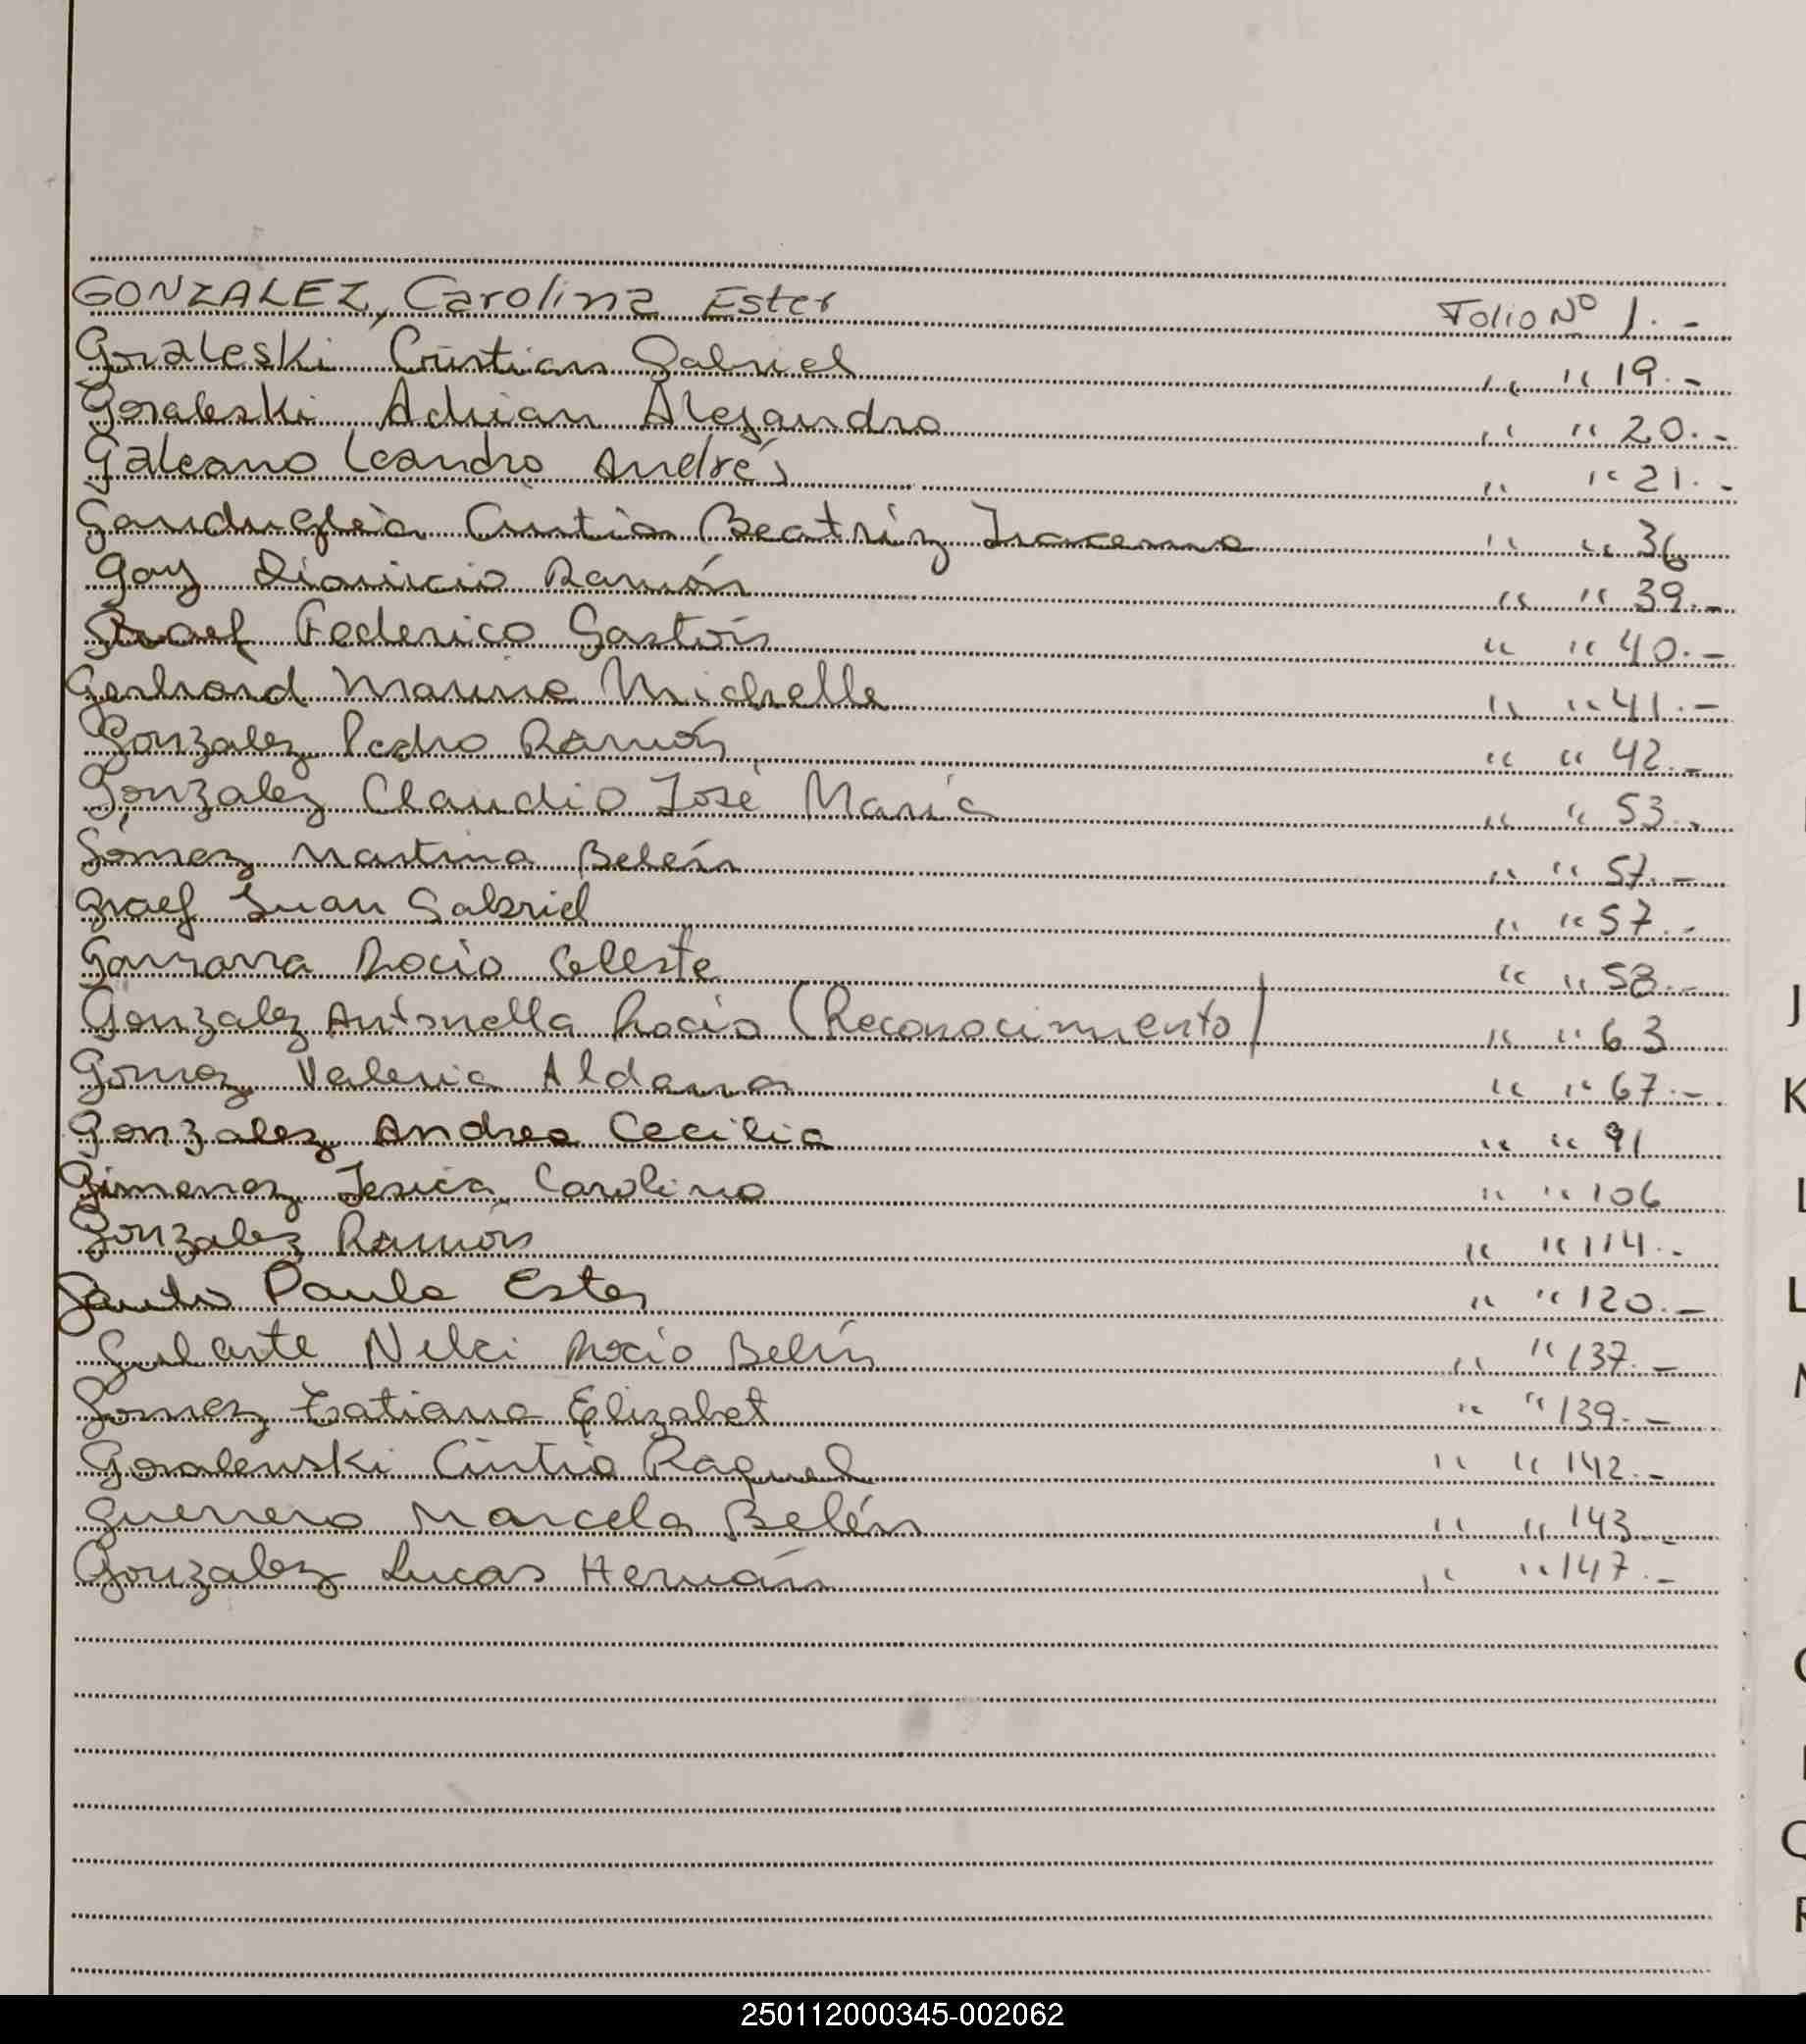 GONZALEZ, Carolina Ester Folio Nº 1.-
Goraleski Cristian Gabriel " " 19.-
Goraleski Adrian Alejandro " " 20.-
Galeano Leandro Andrés " " 21.-
Cintia Beatriz Iracema " " 36
Gay Dionicio Ramón " " 39.-
Graef Federico Gastón " " 40.-
Gerhard Marina Michelle " " 41.-
Gonzalez Pedro Ramón " " 42.-
Gonzalez Claudio José María " " 53.-
Gómez Martina Belén " " 57.-
Graef Juan Gabriel " " 57.-
Rocío Celeste " " 58.-
Gonzalez Antonella Rocío (Reconocimiento) " " 63
Gomez Valeria Aldana " " 67.-
Gonzalez Andrea Cecilia " " 91
Gimenez Jesica Carolina " " 106
Gonzalez Ramón " " 114.-
Paula Ester " " 120.-
Gularte Nelci Rocío Belén " " 137.-
Gomez Tatiana Elizabet " " 139.-
Goralewski Cintia Raquel " " 142.-
Guerrero Marcela Belén " " 143.-
Gonzalez Lucas Hernán " " 147.-
J
K
L
L
Q
R
250112000345-002062